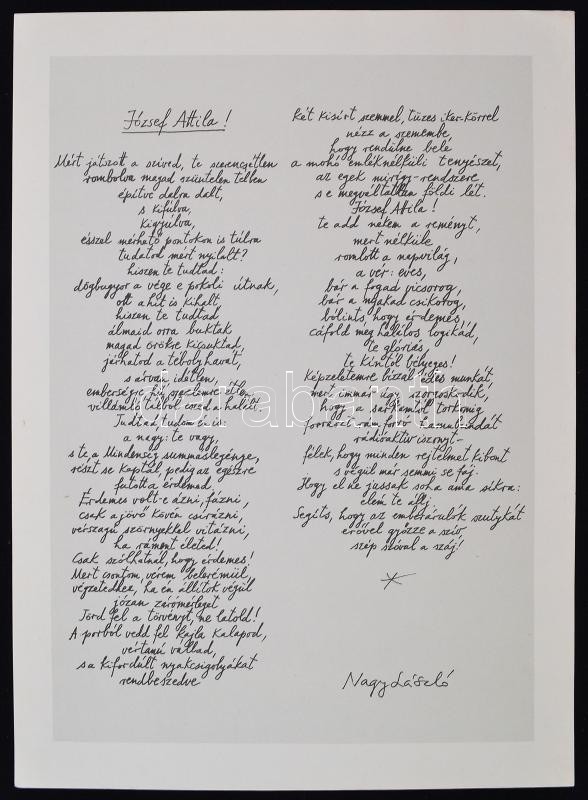 József Attila!
Mért játszott a szíved, te szerencsétlen
rombolva magad szüntelen télben
építve dalra dalt,
s kifúlva,
kigyúlva,
ésszel mérhető pontokon is túlra
tudatod mért nyilalt?
hiszen te tudtad:
dögbugyor a vége e pokoli útnak,
ott a hit is kihalt,
hiszen te tudtad
álmaid orra buktak
magad örökre kicsuktad,
járhatod a téboly havát,
s árván, idétlen,
emberségre, hű szerelemre étlen,
villámló tálból eszed a halált.
Tudtad, tudom én is:
a nagy: te vagy,
s te a Mindenség summáslegénye,
részt se kaptál, pedig az egészre
futott a érdemed,
Érdemes volt-e ázni, fázni,
csak a jövő kövén csirázni,
vérszagú szörnyekkel vitázni,
ha ráment életed!
Csak szólhatnál, hogy érdemes!
Mert csontom, vérem belerémül,
végzetedhez, ha én állítok végül
józan zárómérleget
Törd fel a törvényt, ne latold!
A porból vedd fel kajla kalapod,
vértanú vállad,
s a kifordult nyakcsigolyákat
rendbeszedve
két kisírt szemmel, tüzes iker-körrel
nézz a szemembe,
hogy rendülne bele
a mohó emléknélküli tenyészet,
az egek mirigy-rendszere
s e megváltatlan földi lét.
József Attila!
te add nekem a reményt,
mert nélküle
romlott a napvilág,
a vér: eves,
bár a fogad vicsorog,
bár a nyakad csikorog,
bólints, hogy érdemes,
cáfold meg halálos logikád,
te glóriás,
te kíntól bélyeges!
Képzeletemre bízal édes munkát
mert immár úgy szorgoskodik,
hogy a sarkamtól torkomig
forrázó
rádioaktív iszonyt -
félek, hogy minden rejtelmet kibont
s végül már semmi se fáj.
Hogy el ne jussak soha ama síkra:
elém te állj.
Segíts, hogy az emberárulók szutykát
erővel győzze a szív
szép szóval a száj!
Nagy László
darabanth